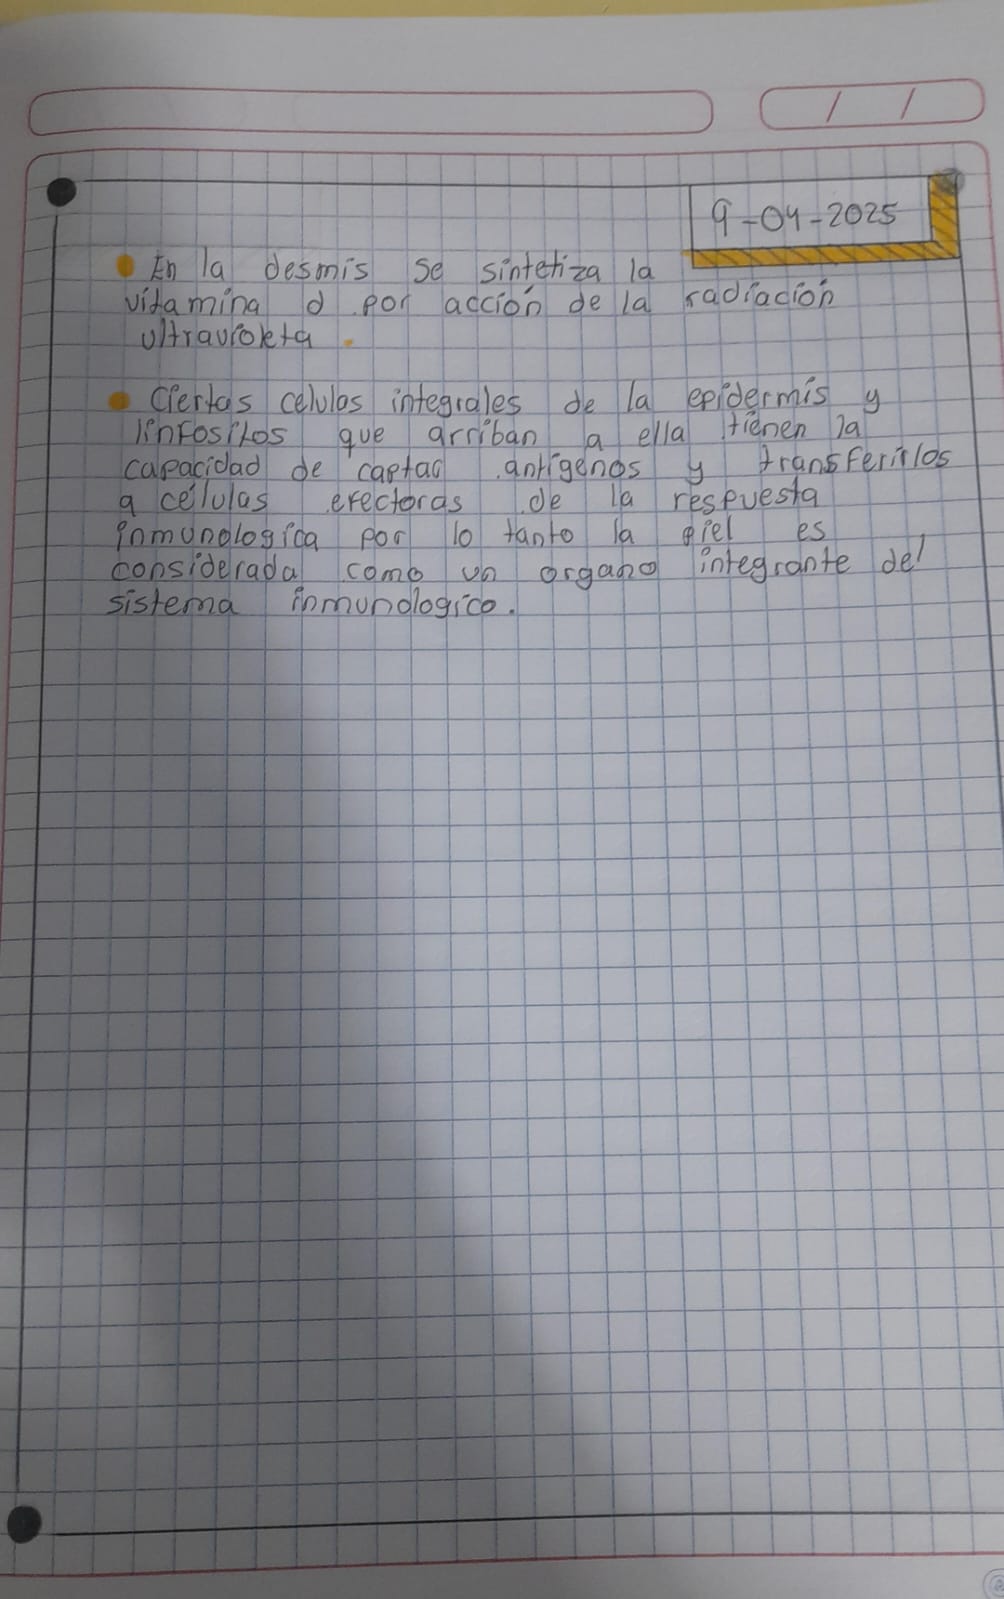 9-04-2025
• En la desmis se sintetiza la
vitamina d por acción de la radiación
ultravioleta.
• Ciertas celulas integrales de la epidermis y
linfositos que arriban a ella tienen la
capacidad de captar antígenos y transferirlos
a células efectoras de la respuesta
inmunologica por lo tanto la piel es
considerada como un organo integrante del
sistema inmunologico.